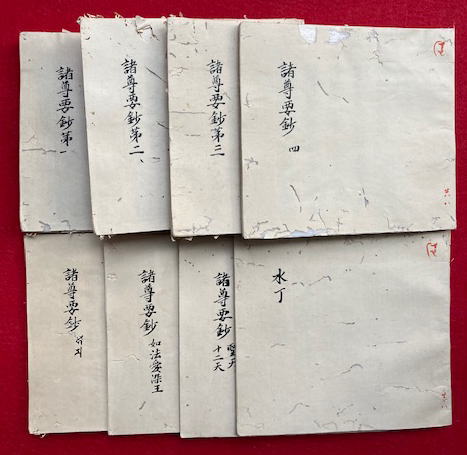 諸尊要鈔第一
諸尊要鈔第二、
諸尊要鈔第三
諸尊要鈔 四
諸尊要鈔
諸尊要鈔 如法愛染王
諸尊要鈔 聖天
十二天
水丁